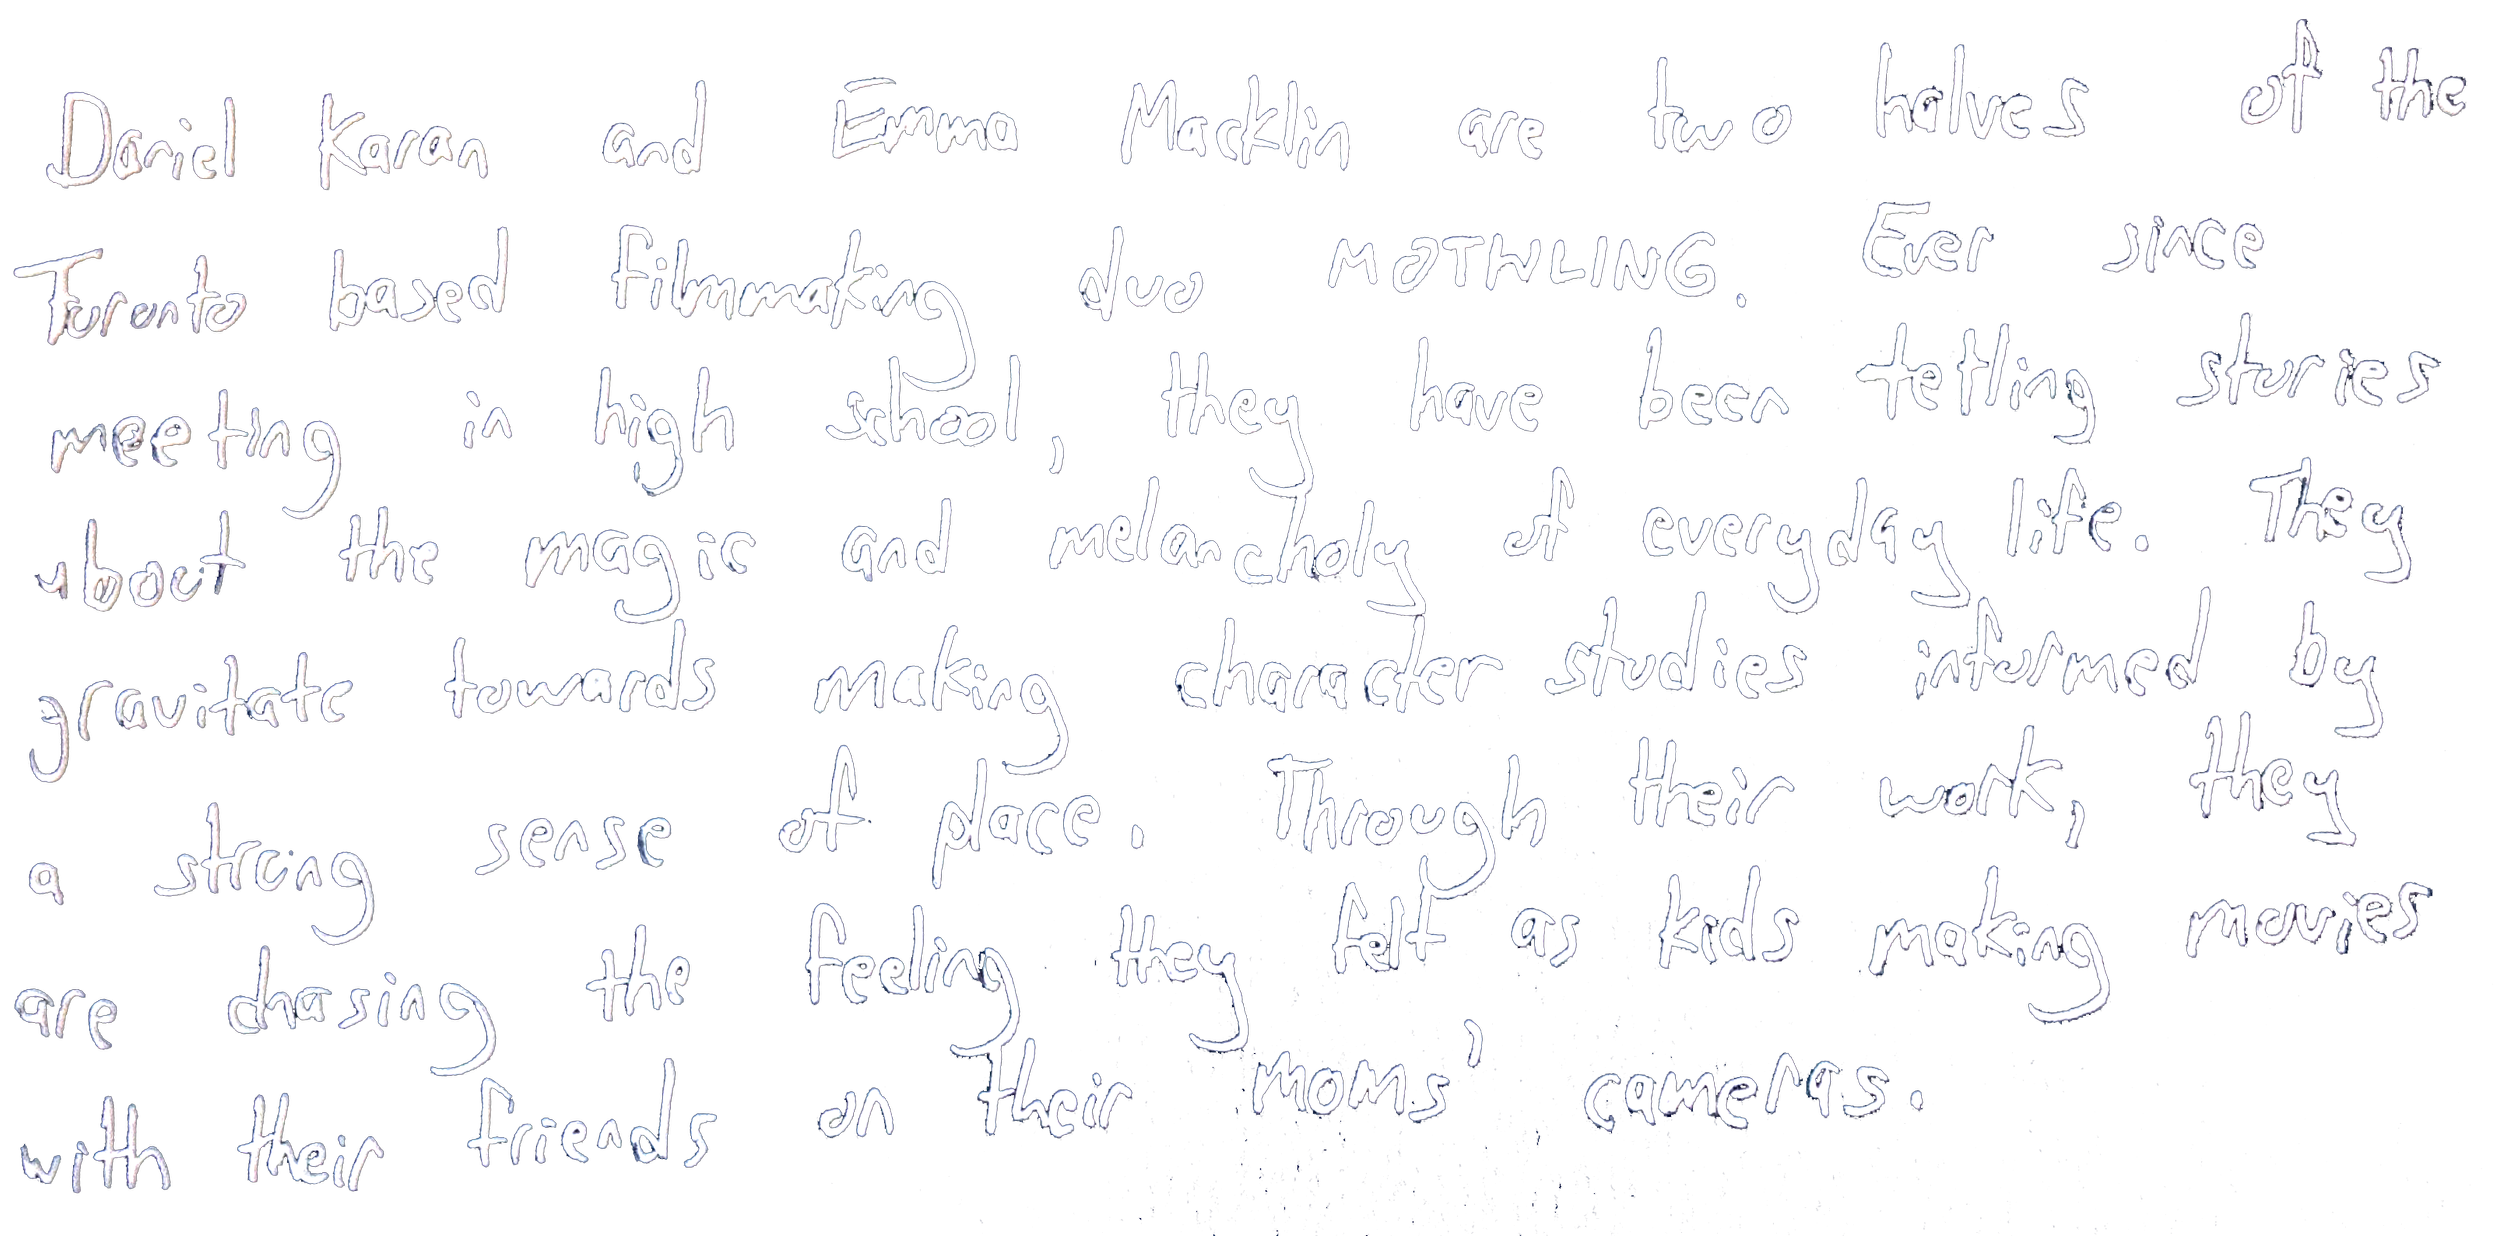 Daniel Karan and Emma Macklin are two halves of the
Toronto based filmmaking duo MOTHLING. Ever since
meeting in high school, they have been telling stories
about the magic and melancholy of everyday life. They
gravitate towards making character studies informed by
a strong sense of place. Through their work, they
are chasing the feeling they felt as kids making movies
with their friends on their moms' cameras.